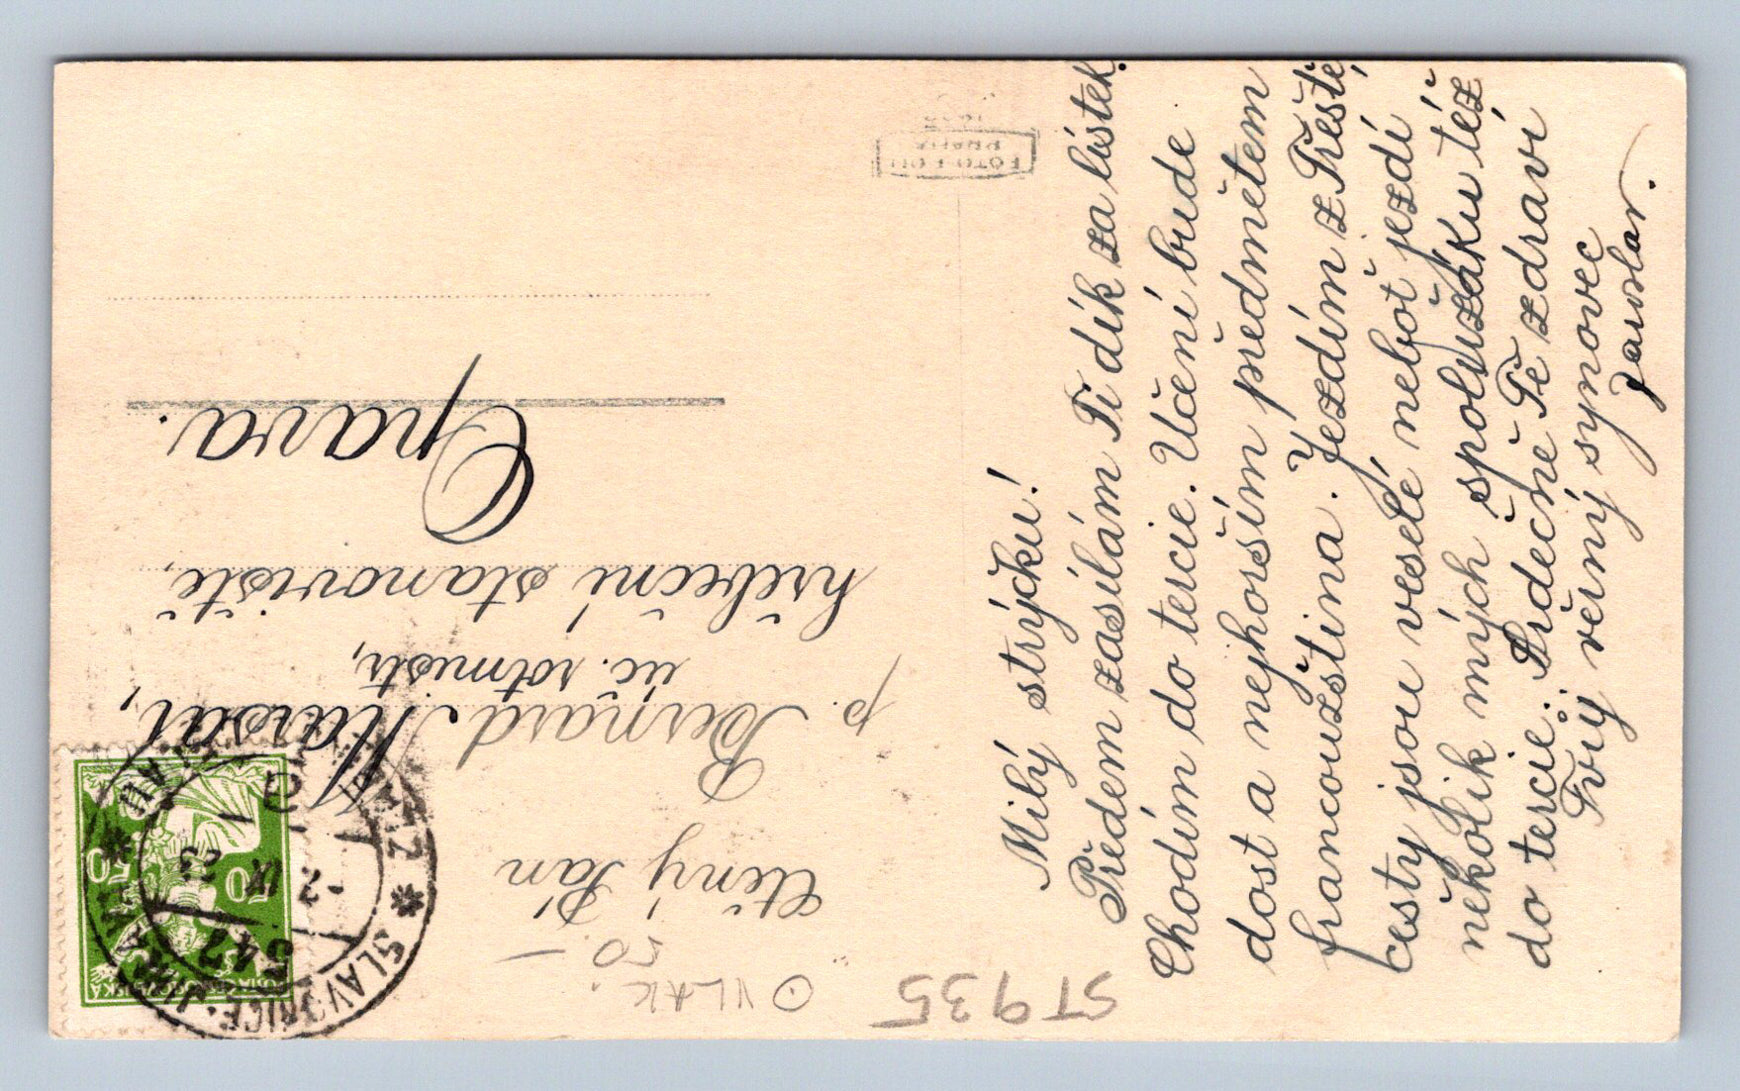 Milý strýčku!
Předem zasílám Ti dík za lístek.
Chodím do tercie. Učení bude
dost a nejhorším předmětem
francouzština. Jezdím z Třeště,
cesty jsou veselé neboť jezdí
několik mých spolužáků též
do tercie. Srdečně Tě zdraví
Tvůj věrný synovec
Jaroslav.
Ctěný Pán
p. Bernard Maršál,
úc. rotmistr,
hřebeční stanoviště,
Opava.
ST935
O VLAK.
50.—
FOTO-FON
PRAHA
50 50
SLAV
647
-2. IX 23